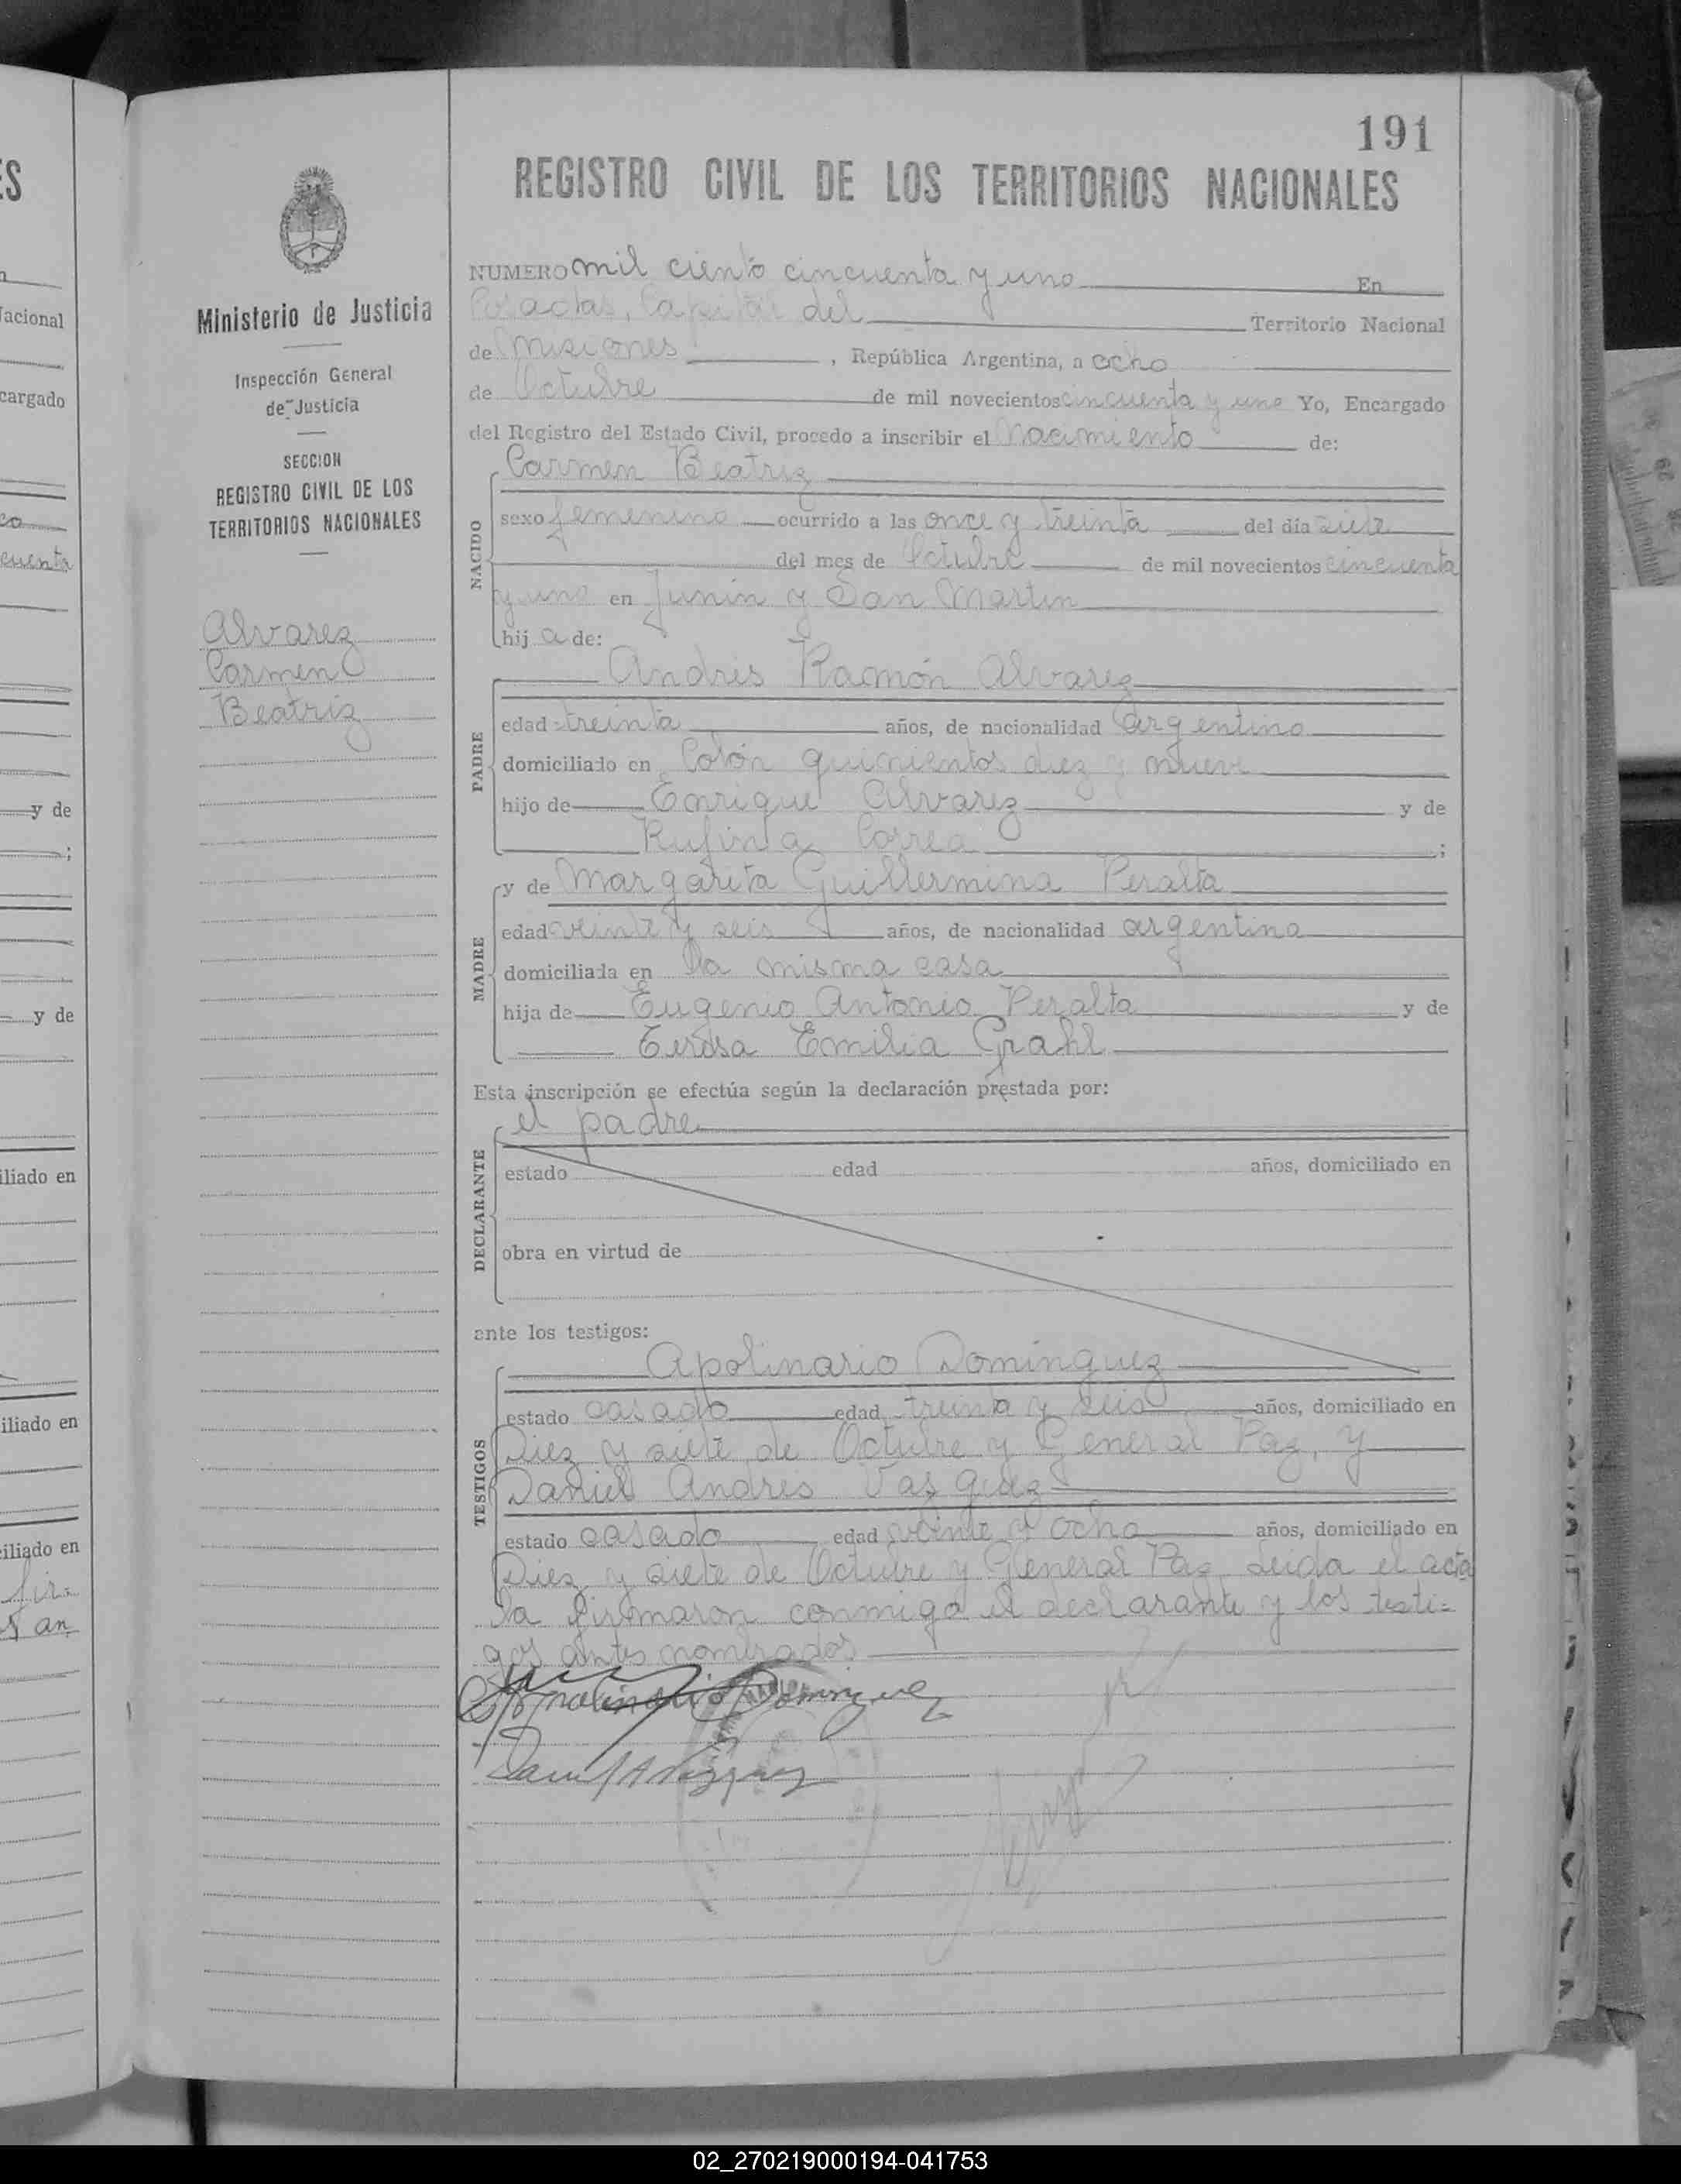 191
REGISTRO CIVIL DE LOS TERRITORIOS NACIONALES
Ministerio de Justicia
Inspección General
de Justicia
SECCION
REGISTRO CIVIL DE LOS
TERRITORIOS NACIONALES
Alvarez
Carmen
Beatriz
NUMERO mil ciento cincuenta y uno En
Posadas, Capital del Territorio Nacional
de Misiones, República Argentina, a ocho
de Octubre de mil novecientos cincuenta y uno Yo, Encargado
del Registro del Estado Civil, procedo a inscribir el nacimiento de:
NACIDO
Carmen Beatriz
sexo femenino ocurrido a las once y treinta del día siete
del mes de Octubre de mil novecientos cincuenta
y uno en Junin y San Martin
hij a de:
PADRE
Andres Ramón Alvarez
edad treinta años, de nacionalidad argentino
domiciliado en Colón quinientos diez y nueve
hijo de Enrique Alvarez y de
Rufina Correa ;
MADRE
y de Margarita Guillermina Peralta
edad veinte y seis años, de nacionalidad argentina
domiciliada en la misma casa
hija de Eugenio Antonio Peralta y de
Teresa Emilia Grahl
Esta inscripción se efectúa según la declaración prestada por:
DECLARANTE
el padre
estado edad años, domiciliado en
obra en virtud de
ante los testigos:
TESTIGOS
Apolinario Dominguez
estado casado edad treinta y seis años, domiciliado en
Diez y siete de Octubre y General Paz, y
Daniel Andres Vasquez
estado casado edad veinte y ocho años, domiciliado en
Diez y siete de Octubre y General Paz Leida el acta
la firmaron conmigo el declarante y los testi=
gos antes nombrados
Apolinario Dominguez
Daniel A Vazquez
S
n
Nacional
cargado
co
cuenta
y de
;
y de
iliado en
iliado en
iliado en
fir=
an
02_270219000194-041753